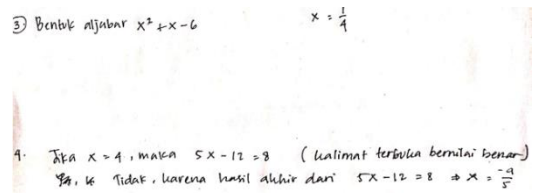 ③ Bentuk aljabar x² + x - 6 x = 1/4
4. Jika x = 4, maka 5x - 12 = 8 (kalimat terbuka bernilai benar)
Tidak, karena hasil akhir dari 5x - 12 = 8 ⇒ x = -9/5